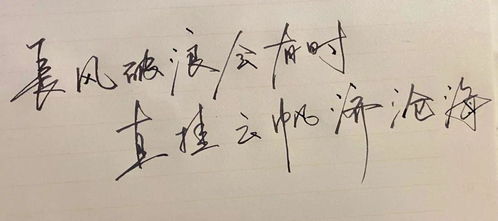 長风破浪会有时
直挂云帆济沧海